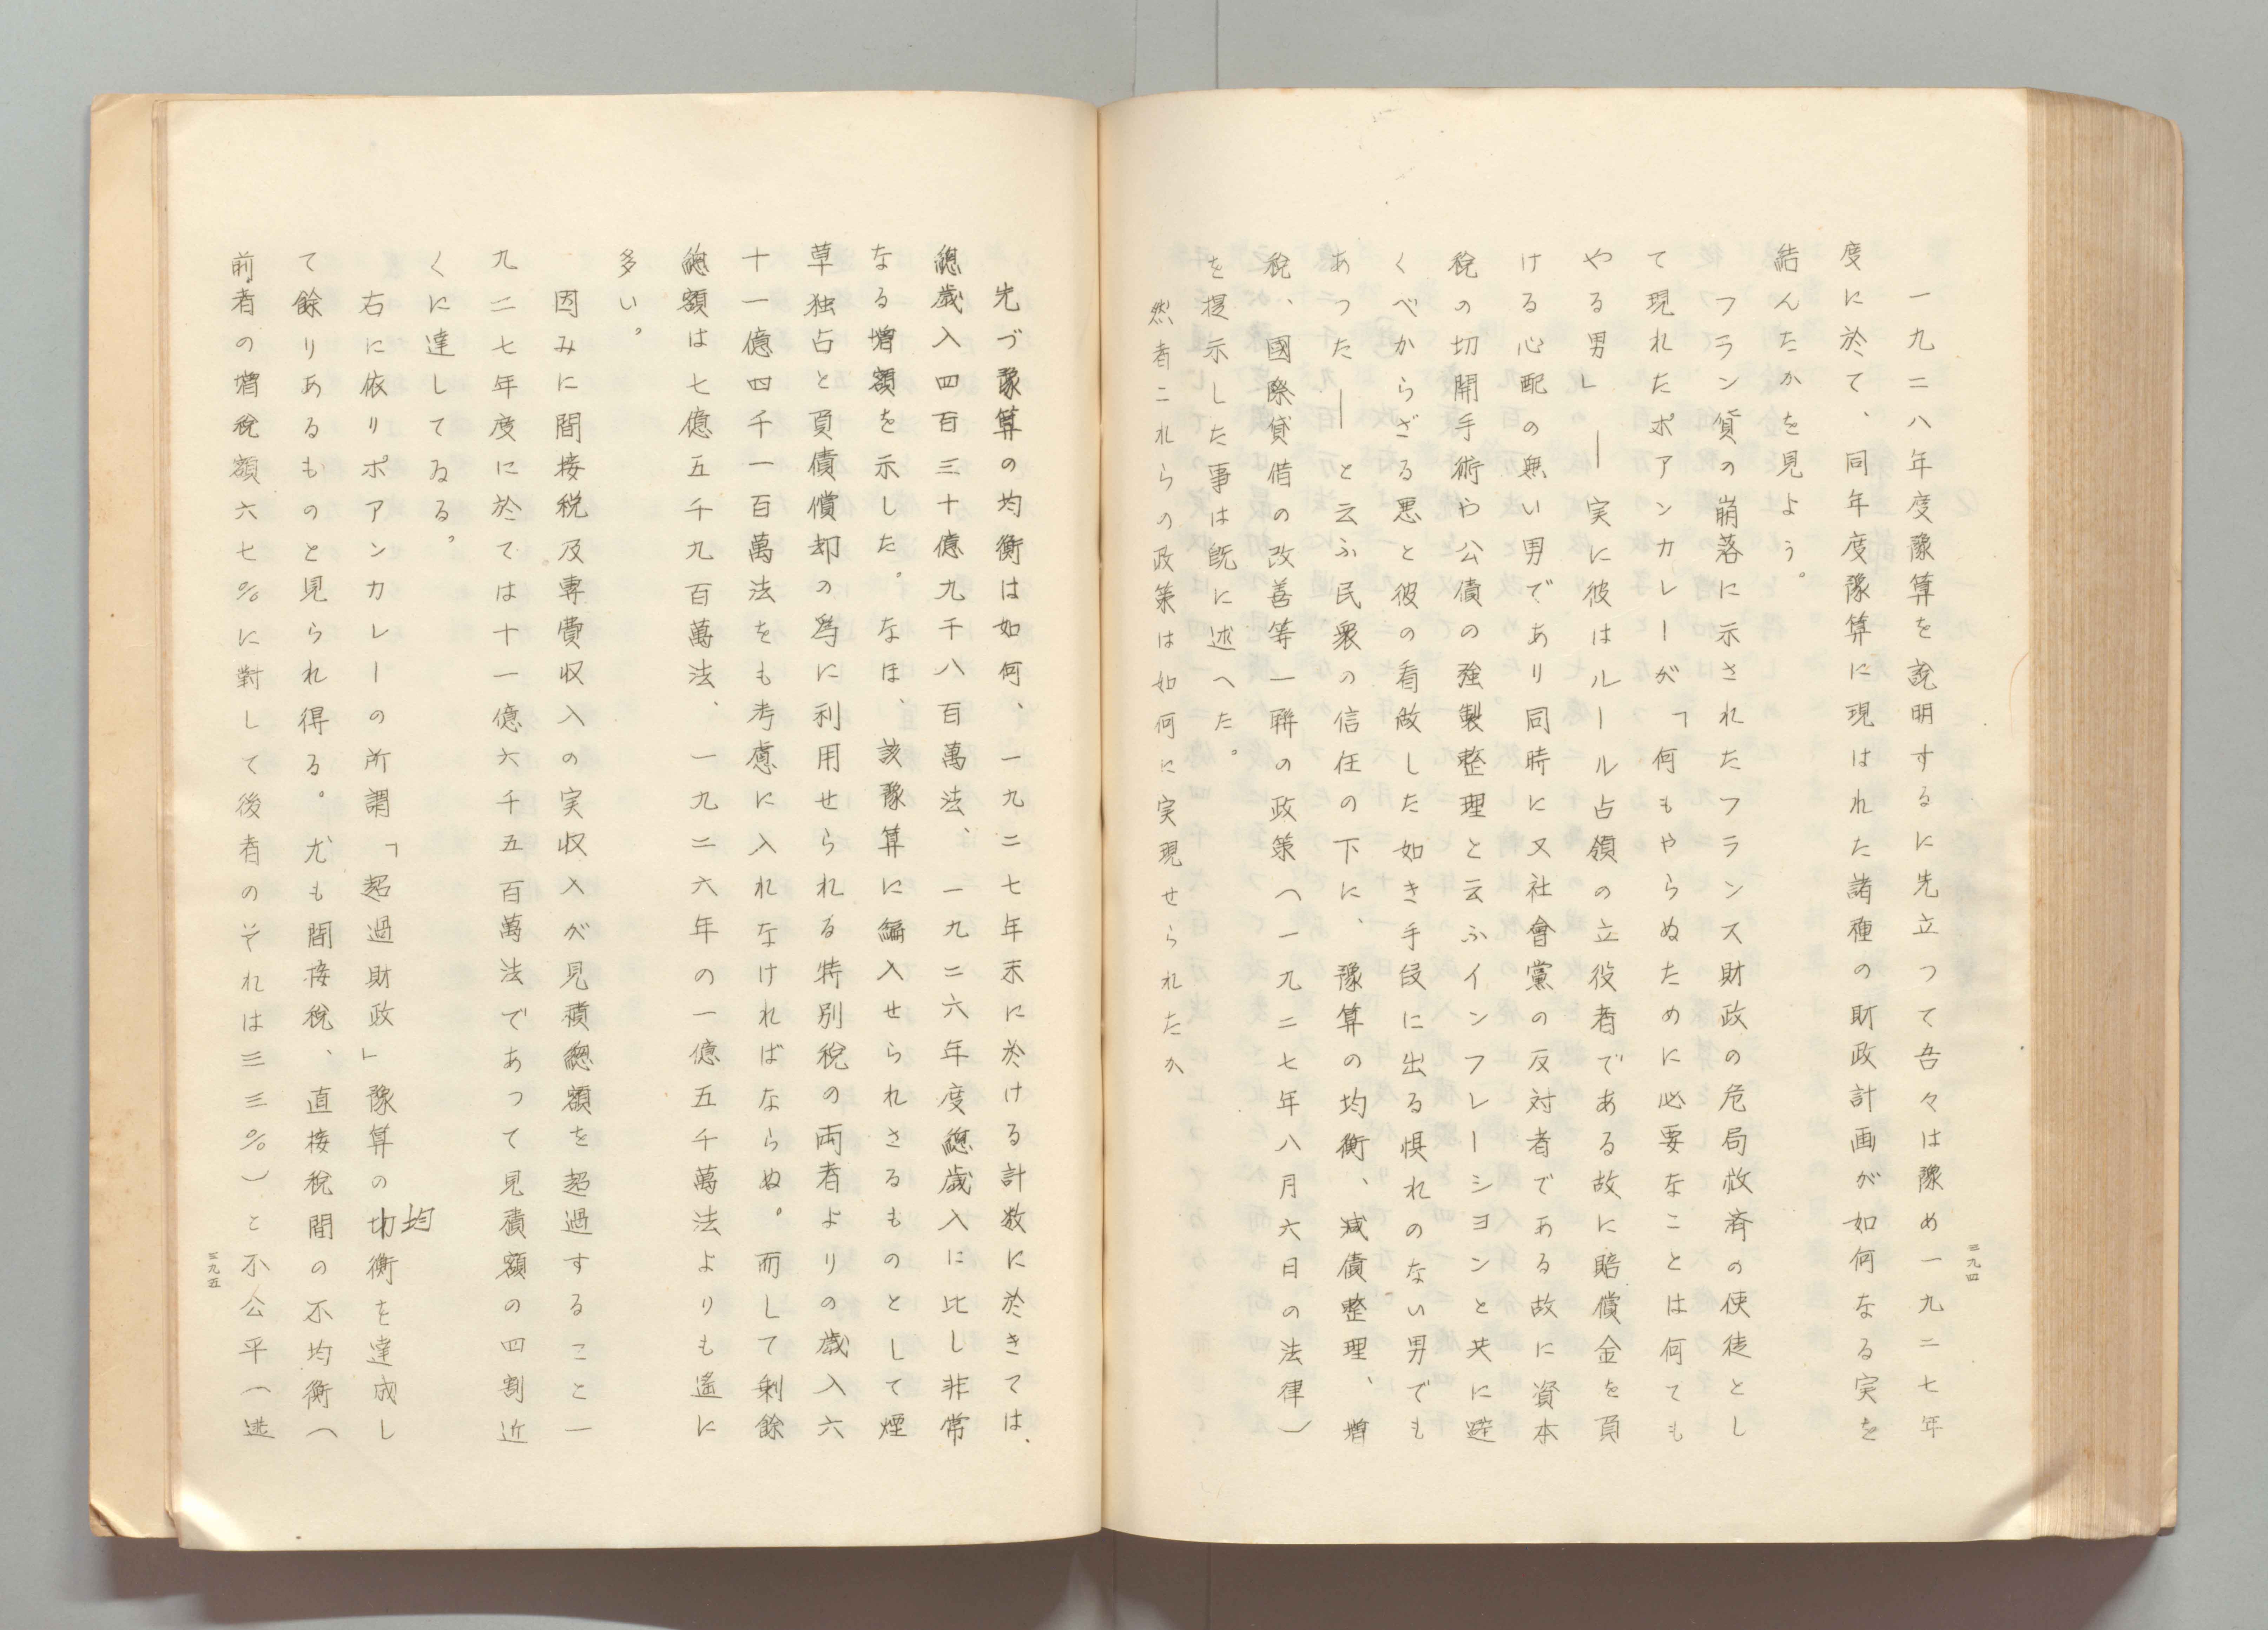 三九四
一九二八年度豫算を説明するに先立つて吾々は豫め一九二七年
度に於て、同年度豫算に現はれた諸種の財政計画が如何なる実を
結んたかを見よう。
フラン貨の崩落に示されたフランス財政の危局救済の使徒とし
て現れたポアンカレーが「何もやらぬために必要なことは何ても
やる男」――実に彼はルール占領の立役者である故に賠償金を負
ける心配の無い男であり同時に又社會黨の反対者である故に資本
税の切開手術や公債の強製整理と云ふインフレーシヨンと共に避
くべからざる悪と彼の看做した如き手段に出る惧れのない男でも
あつた――と云ふ民衆の信任の下に、豫算の均衡、減債整理、増
税、國際貸借の改善等一聯の政策（一九二七年八月六日の法律）
を提示した事は既に述へた。
然者二れらの政策は如何に実現せられたか
先づ豫算の均衡は如何、一九二七年末に於ける計数に於きては、
總歳入四百三十億九千八百萬法、一九二六年度總歳入に比し非常
なる増額を示した。なほ、該豫算に編入せられさるものとして煙
草独占と負債償却の爲に利用せられる特別税の両者よりの歳入六
十一億四千一百萬法をも考慮に入れなければならぬ。而して剰餘
總額は七億五千九百萬法、一九二六年の一億五千萬法よりも遙に
多い。
因みに間接税及專賣収入の実収入が見積總額を超過すること一
九二七年度に於ては十一億六千五百萬法であつて見積額の四割近
くに達してゐる。
右に依りポアンカレーの所謂「超過財政」豫算の均衡を達成し
て餘りあるものと見られ得る。尤も間接税、直接税間の不均衡（
前者の増税額六七%に對して後者のそれは三三%）と不公平（逃
三九五